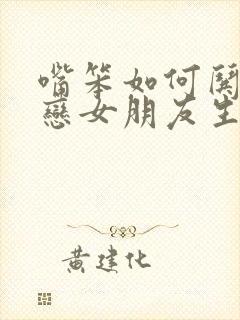 嘴笨如何関
戀女朋友生
黄建化